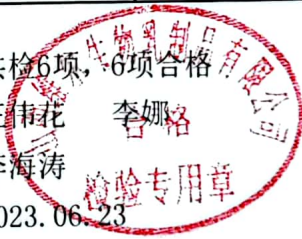 共检6项，6项合格
伟花 李娜
李海涛
2023.06.23
生物乳制品有限公司
合格
检验专用章